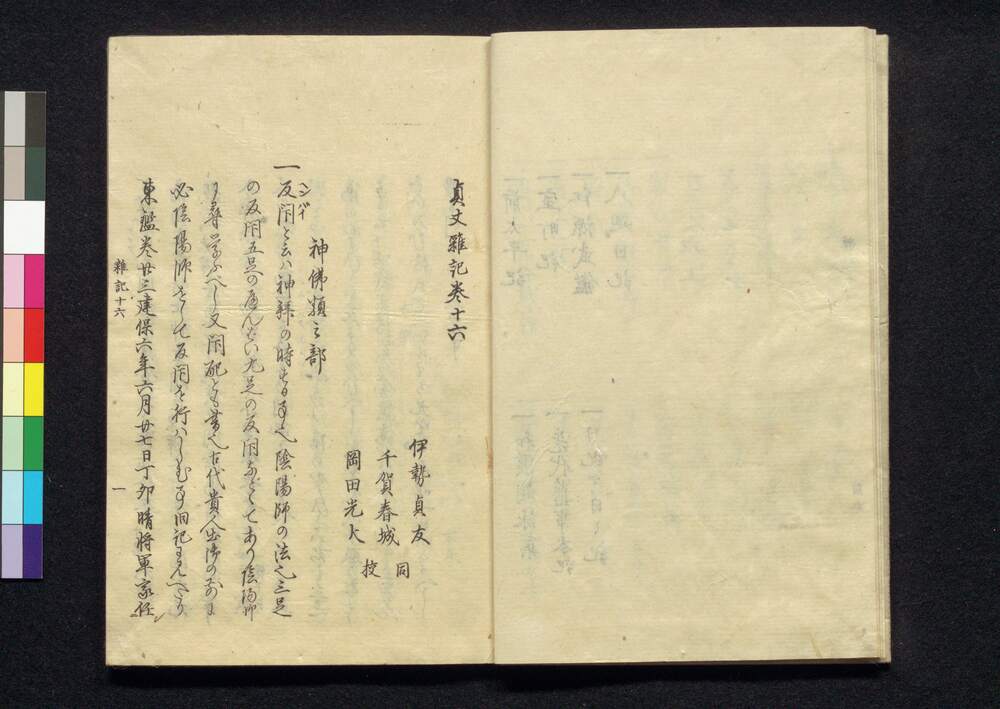 貞丈雜記巻十六
伊勢貞友
千賀春城
岡田光大
同校
神佛類之部
一反閇と云ハ神拝の時する事也陰陽師の法也三足
ヘンバイ
の反閇五足の反閇九足の反閇などゝてあり陰陽師
に尋学ふべし又閇配とも書也古代貴人出御の前に
必陰陽師をして反閇を行ハしむる事旧記に見へたり
東鑑巻廿三建保六年六月廿七日丁卯晴將軍家任
雜記十六
一